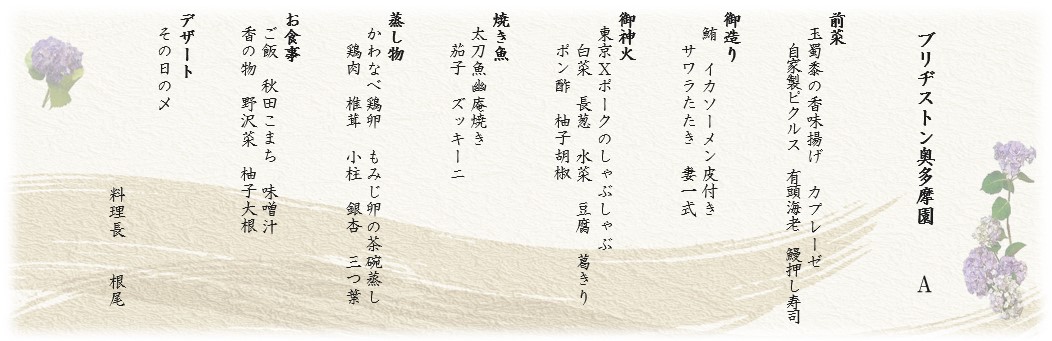 ブリヂストン奥多摩園　A
前菜
玉蜀黍の香味揚げ　カプレーゼ
自家製ピクルス　有頭海老　鰻押し寿司
御造り
鮪　イカソーメン皮付き
サワラたたき　妻一式
御神火
東京Xポークのしゃぶしゃぶ
白菜　長葱　水菜　豆腐　葛きり
ポン酢　柚子胡椒
焼き魚
太刀魚幽庵焼き
茄子　ズッキーニ
蒸し物
かわなべ鶏卵　もみじ卵の茶碗蒸し
鶏肉　椎茸　小柱　銀杏　三つ葉
お食事
ご飯　秋田こまち　味噌汁
香の物　野沢菜　柚子大根
デザート
その日の〆
料理長　根尾